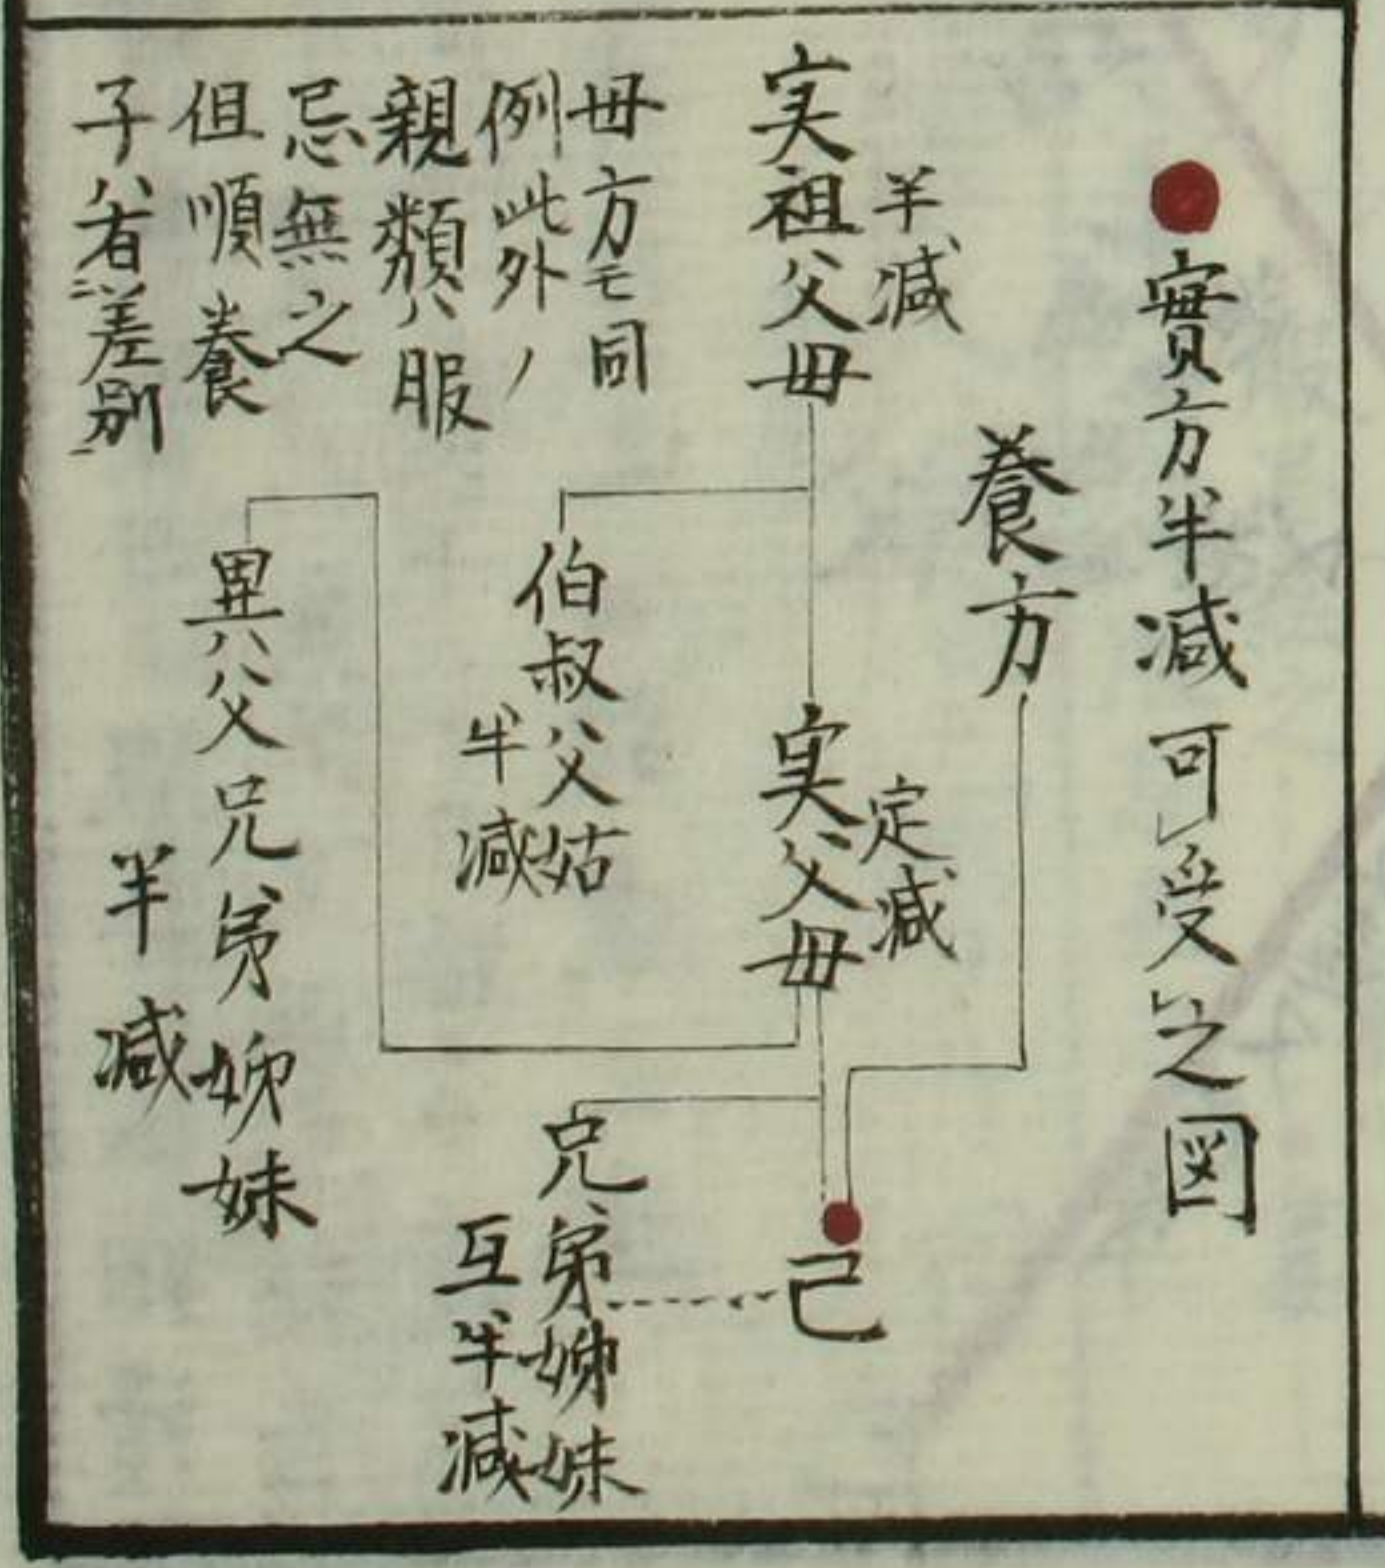 ●實方半減可レ受レ之図
養方
半減
実祖父母
定減
実父母
己
伯叔父姑
半減
兄弟姉妹
互半減
異父兄弟姉妹
半減
毋方モ同
例此外ノ
親類ハ服
忌無之
但順養
子ハ有差別